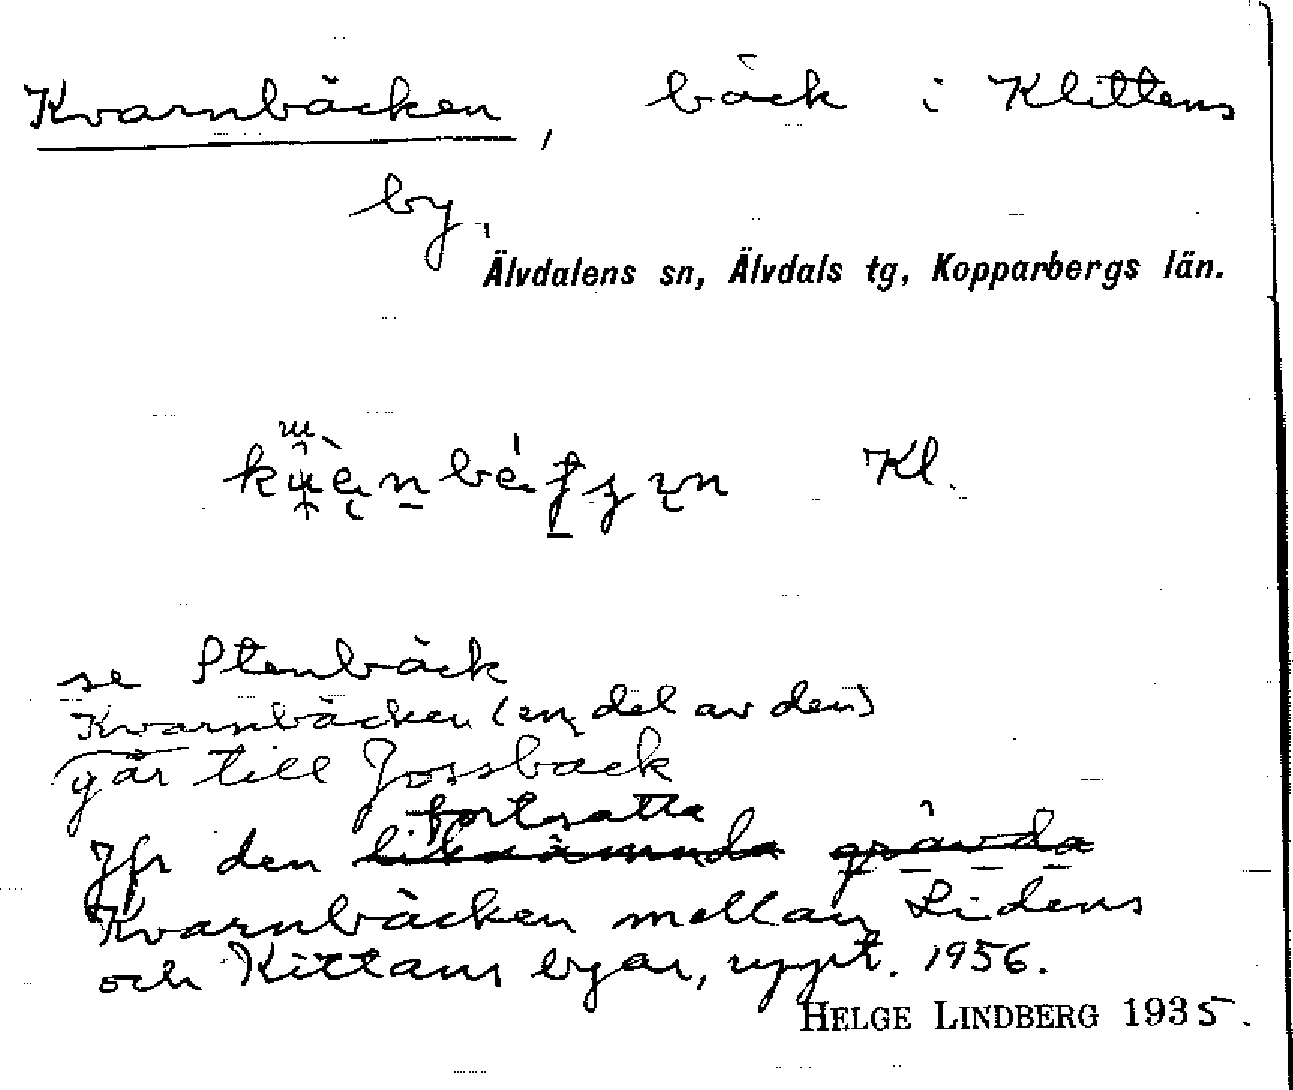 Kvarnbäcken, bäck i Klittens
by,
Älvdalens sn, Älvdals tg, Kopparbergs län.
Kl.
se Stenbäck
Kvarnbäcken (en del av den)
går till Jossbäck
fortsatta
Jfr den liknämnda grävda
Kvarnbäcken mellan Lidens
och Kittans byar, uppt. 1956.
HELGE LINDBERG 1935.